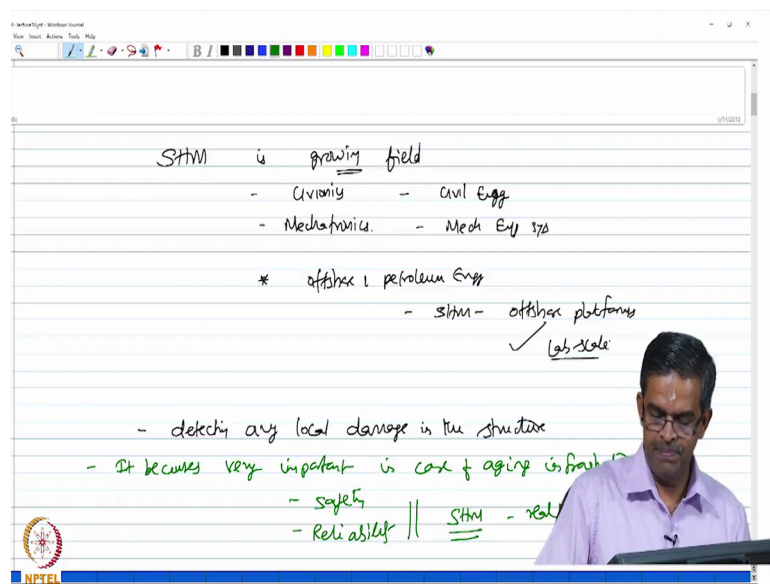 View Insert Actions Tools Help
B I
5/11/2018
SHM is growing field
- Avionics - Civil Engg
- Mechatronics. - Mech Engg sys
* offshore & petroleum Engg
- SHM - offshore platforms
✓ Lab scale
- detecting any local damage in the structure
- It becomes very important in case of aging
- Safety
- Reliability || SHM -
NPTEL